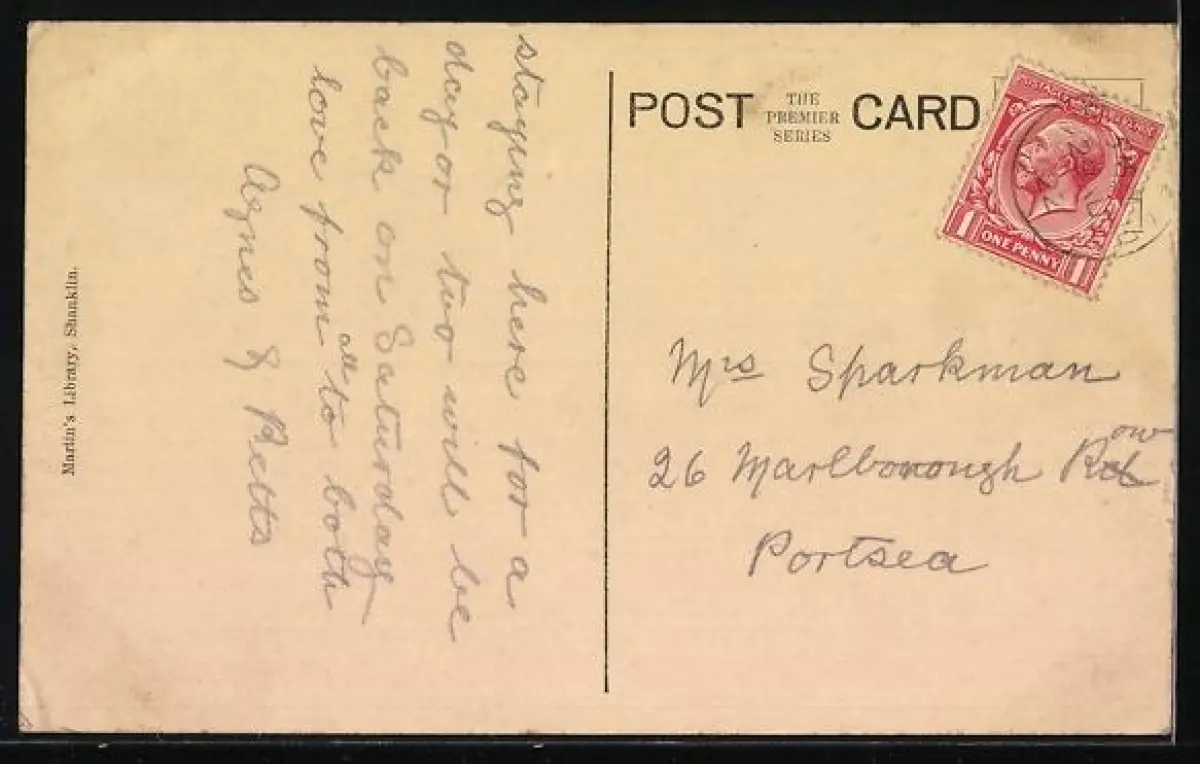 staying here for a
day or two will be
back on Saturday
love from all to both
Agnes & Betts
Martin's Library, Shanklin.
POST THE PREMIER SERIES CARD
ONE PENNY
1 1
Mrs Sparkman
26 Marlborough Row
Portsea